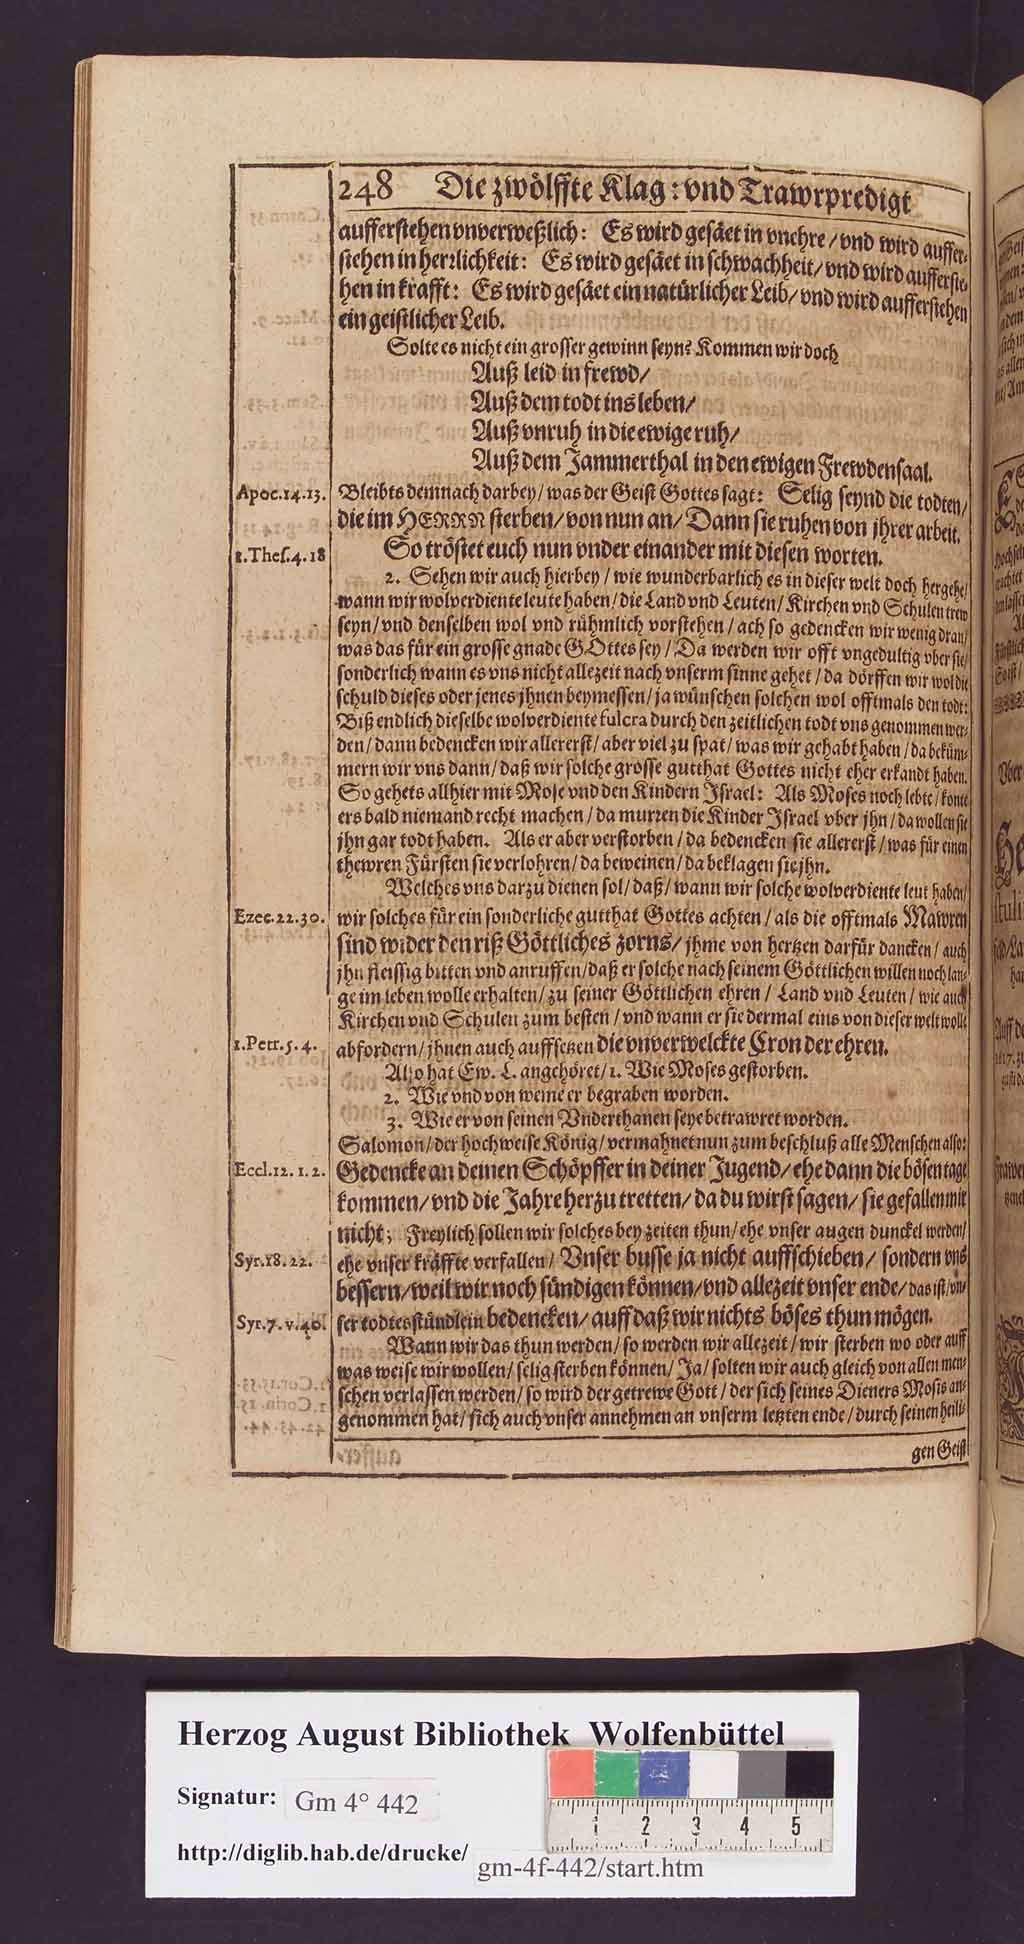 248 Die zwölffte Klag: vnd Trawrpredigt
aufferstehen vnverweßlich: Es wird gesäet in vnehre/ vnd wird auffer-
stehen in herrlichkeit: Es wird gesäet in schwachheit/ vnd wird aufferste-
hen in krafft: Es wird gesäet ein natürlicher Leib/ vnd wird aufferstehen
ein geistlicher Leib.
Solte es nicht ein grosser gewinn seyn? Kommen wir doch
Auß leid in frewd/
Auß dem todt ins leben/
Auß vnruh in die ewige ruh/
Auß dem Jammerthal in den ewigen Frewdensaal.
Apoc.14.13. Bleibts demnach darbey/ was der Geist Gottes sagt: Selig seynd die todten/
die im HERRN sterben/ von nun an/ Dann sie ruhen von jhrer arbeit.
1.Thes.4.18 So tröstet euch nun vnder einander mit diesen worten.
2. Sehen wir auch hierbey/ wie wunderbarlich es in dieser welt doch hergehe/
wann wir wolverdiente leute haben/ die Land vnd Leuten/ Kirchen vnd Schulen trew
seyn/ vnd denselben wol vnd rühmlich vorstehen/ ach so gedencken wir wenig dran/
was das für ein grosse gnade GOttes sey/ Da werden wir offt vngedultig vber sie/
sonderlich wann es vns nicht allezeit nach vnserm sinne gehet/ da dörffen wir wol die
schuld dieses oder jenes jhnen beymessen/ ja wünschen solchen wol offtmals den todt:
Biß endlich dieselbe wolverdiente fulcra durch den zeitlichen todt vns genommen wer-
den/ dann bedencken wir allererst/ aber viel zu spat/ was wir gehabt haben/ da beküm-
mern wir vns dann/ daß wir solche grosse gutthat Gottes nicht eher erkandt haben.
So gehets allhier mit Mose vnd den Kindern Israel: Als Moses noch lebte/ konte
ers bald niemand recht machen/ da murren die Kinder Israel vber jhn/ da wollen sie
jhn gar todt haben. Als er aber verstorben/ da bedencken sie allererst/ was für einen
thewren Fürsten sie verlohren/ da beweinen/ da beklagen sie jhn.
Welches vns darzu dienen sol/ daß/ wann wir solche wolverdiente leut haben/
Ezec.22.30. wir solches für ein sonderliche gutthat Gottes achten/ als die offtmals Mawren
sind wider den riß Göttliches zorns/ jhme von hertzen darfür dancken/ auch
jhn fleissig bitten vnd anruffen/ daß er solche nach seinem Göttlichen willen noch lan-
ge im leben wolle erhalten/ zu seiner Göttlichen ehren/ Land vnd Leuten/ wie auch
Kirchen vnd Schulen zum besten/ vnd wann er sie dermal eins von dieser welt wolle
1.Petr.5.4. abfordern/ jhnen auch auffsetzen die vnverwelckte Cron der ehren.
Also hat Ew. L. angehöret/ 1. Wie Moses gestorben.
2. Wie vnd von weme er begraben worden.
3. Wie er von seinen Vnderthanen seye betrawret worden.
Salomon/ der hochweise König/ vermahnet nun zum beschluß alle Menschen also:
Eccl.12.1.2. Gedencke an deinen Schöpffer in deiner Jugend/ ehe dann die bösen tage
kommen/ vnd die Jahre herzu tretten/ da du wirst sagen/ sie gefallen mir
nicht; Freylich sollen wir solches bey zeiten thun/ ehe vnser augen dunckel werden/
Syr.18.22. ehe vnser kräffte verfallen/ Vnser busse ja nicht auffschieben/ sondern vns
bessern/ weil wir noch sündigen können/ vnd allezeit vnser ende/ das ist/ vn-
Syr.7.v.40. ser todtesstündlein bedencken/ auff daß wir nichts böses thun mögen.
Wann wir das thun werden/ so werden wir allezeit/ wir sterben wo oder auff
was weise wir wollen/ selig sterben können/ Ja/ solten wir auch gleich von allen men-
schen verlassen werden/ so wird der getrewe Gott/ der sich seines Dieners Mosis an-
genommen hat/ sich auch vnser annehmen an vnserm letzten ende/ durch seinen heili-
gen Geist
Herzog August Bibliothek Wolfenbüttel
Signatur: Gm 4° 442
1 2 3 4 5
http://diglib.hab.de/drucke/ gm-4f-442/start.htm